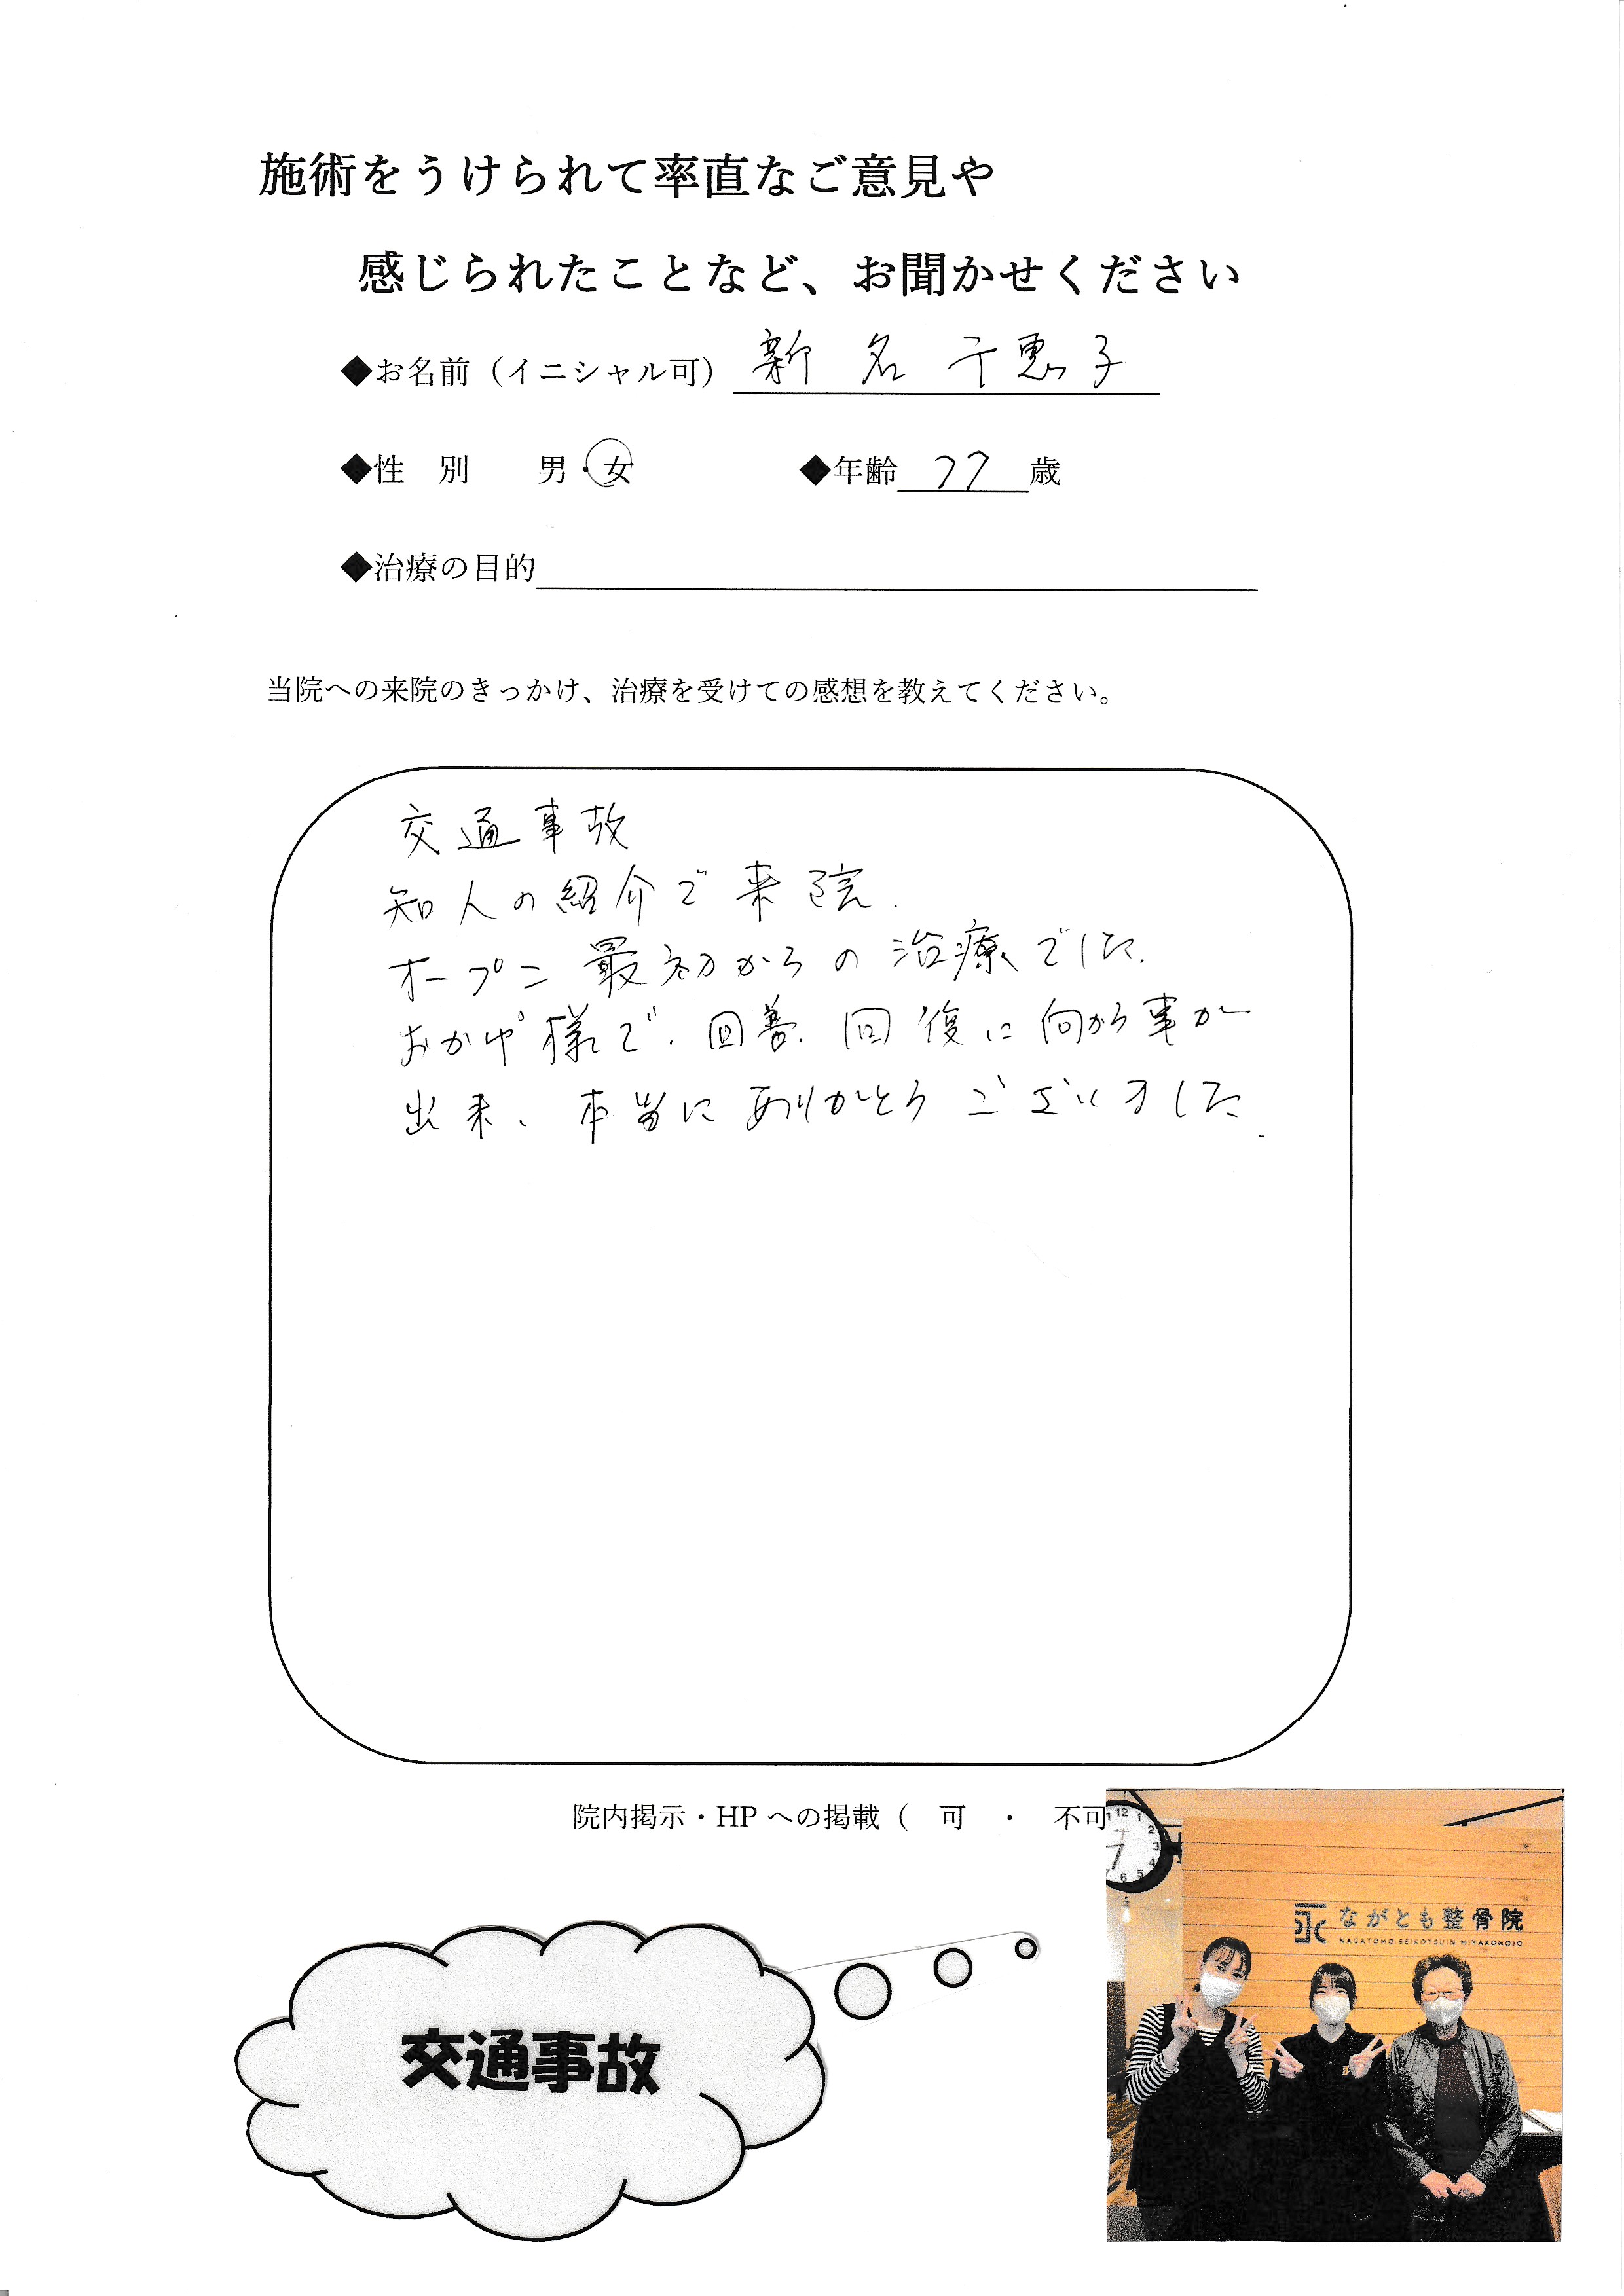 施術をうけられて率直なご意見や
感じられたことなど、お聞かせください
◆お名前（イニシャル可） 新名千恵子
◆性 別 男・女 ◆年齢 77 歳
◆治療の目的
当院への来院のきっかけ、治療を受けての感想を教えてください。
交通事故
知人の紹介で来院.
オープン最初からの治療でした.
おかげ様で.回善.回復に向かう事が
出来、本当にありがとうございました.
院内掲示・HPへの掲載（ 可 ・ 不可
12 1 2 3 4 5 6 7
永 ながとも整骨院
NAGATOMO SEIKOTSUIN MIYAKONOJO
交通事故